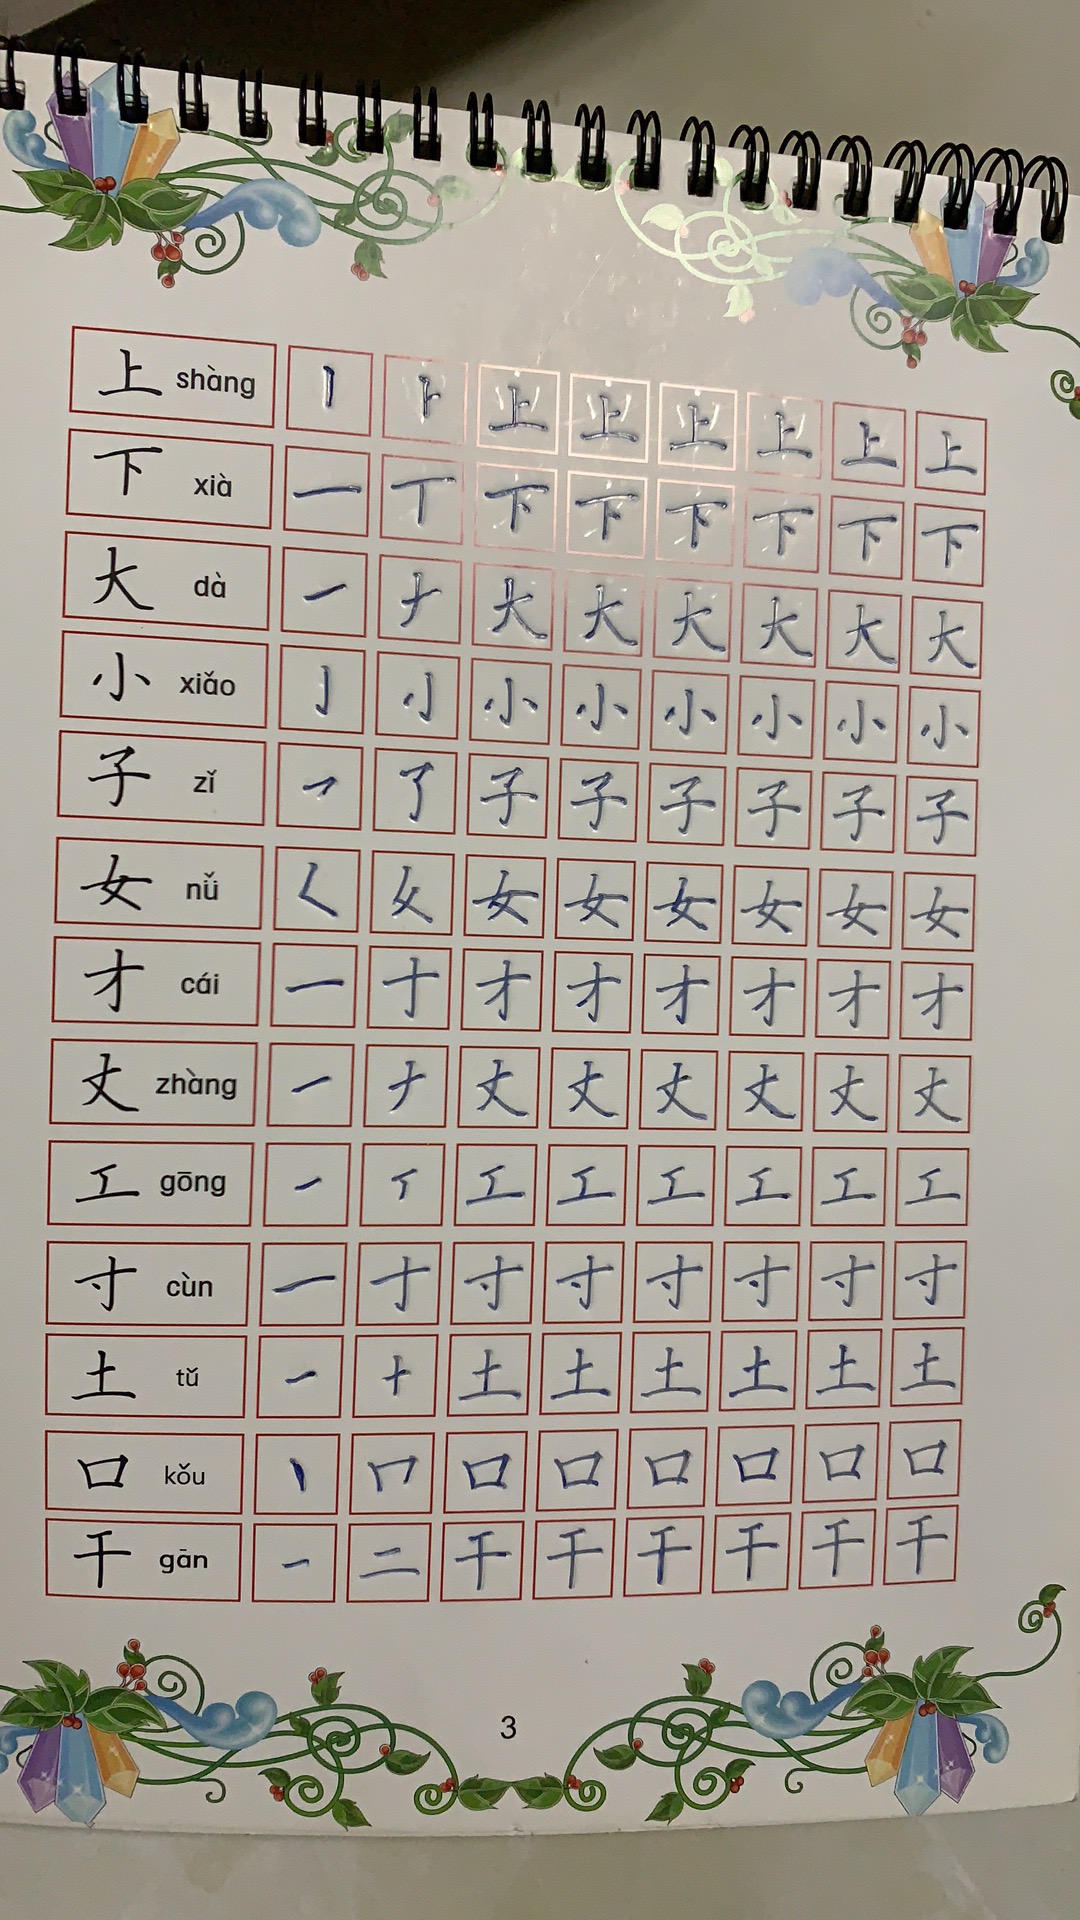 上 shàng 丨 ⺊ 上 上 上 上 上 上
下 xià 一 丅 下 下 下 下 下 下
大 dà 一 ナ 大 大 大 大 大 大
小 xiǎo 亅 小 小 小 小 小 小
子 zǐ 乛 了 子 子 子 子 子 子
女 nǚ ㄑ 女 女 女 女 女 女
才 cái 一 十 才 才 才 才 才 才
丈 zhàng 一 ナ 丈 丈 丈 丈 丈 丈
工 gōng 一 丅 工 工 工 工 工 工
寸 cùn 一 寸 寸 寸 寸 寸 寸
土 tǔ 一 十 土 土 土 土 土 土
口 kǒu 丨 冂 口 口 口 口 口 口
干 gān 一 二 干 干 干 干 干 干
3